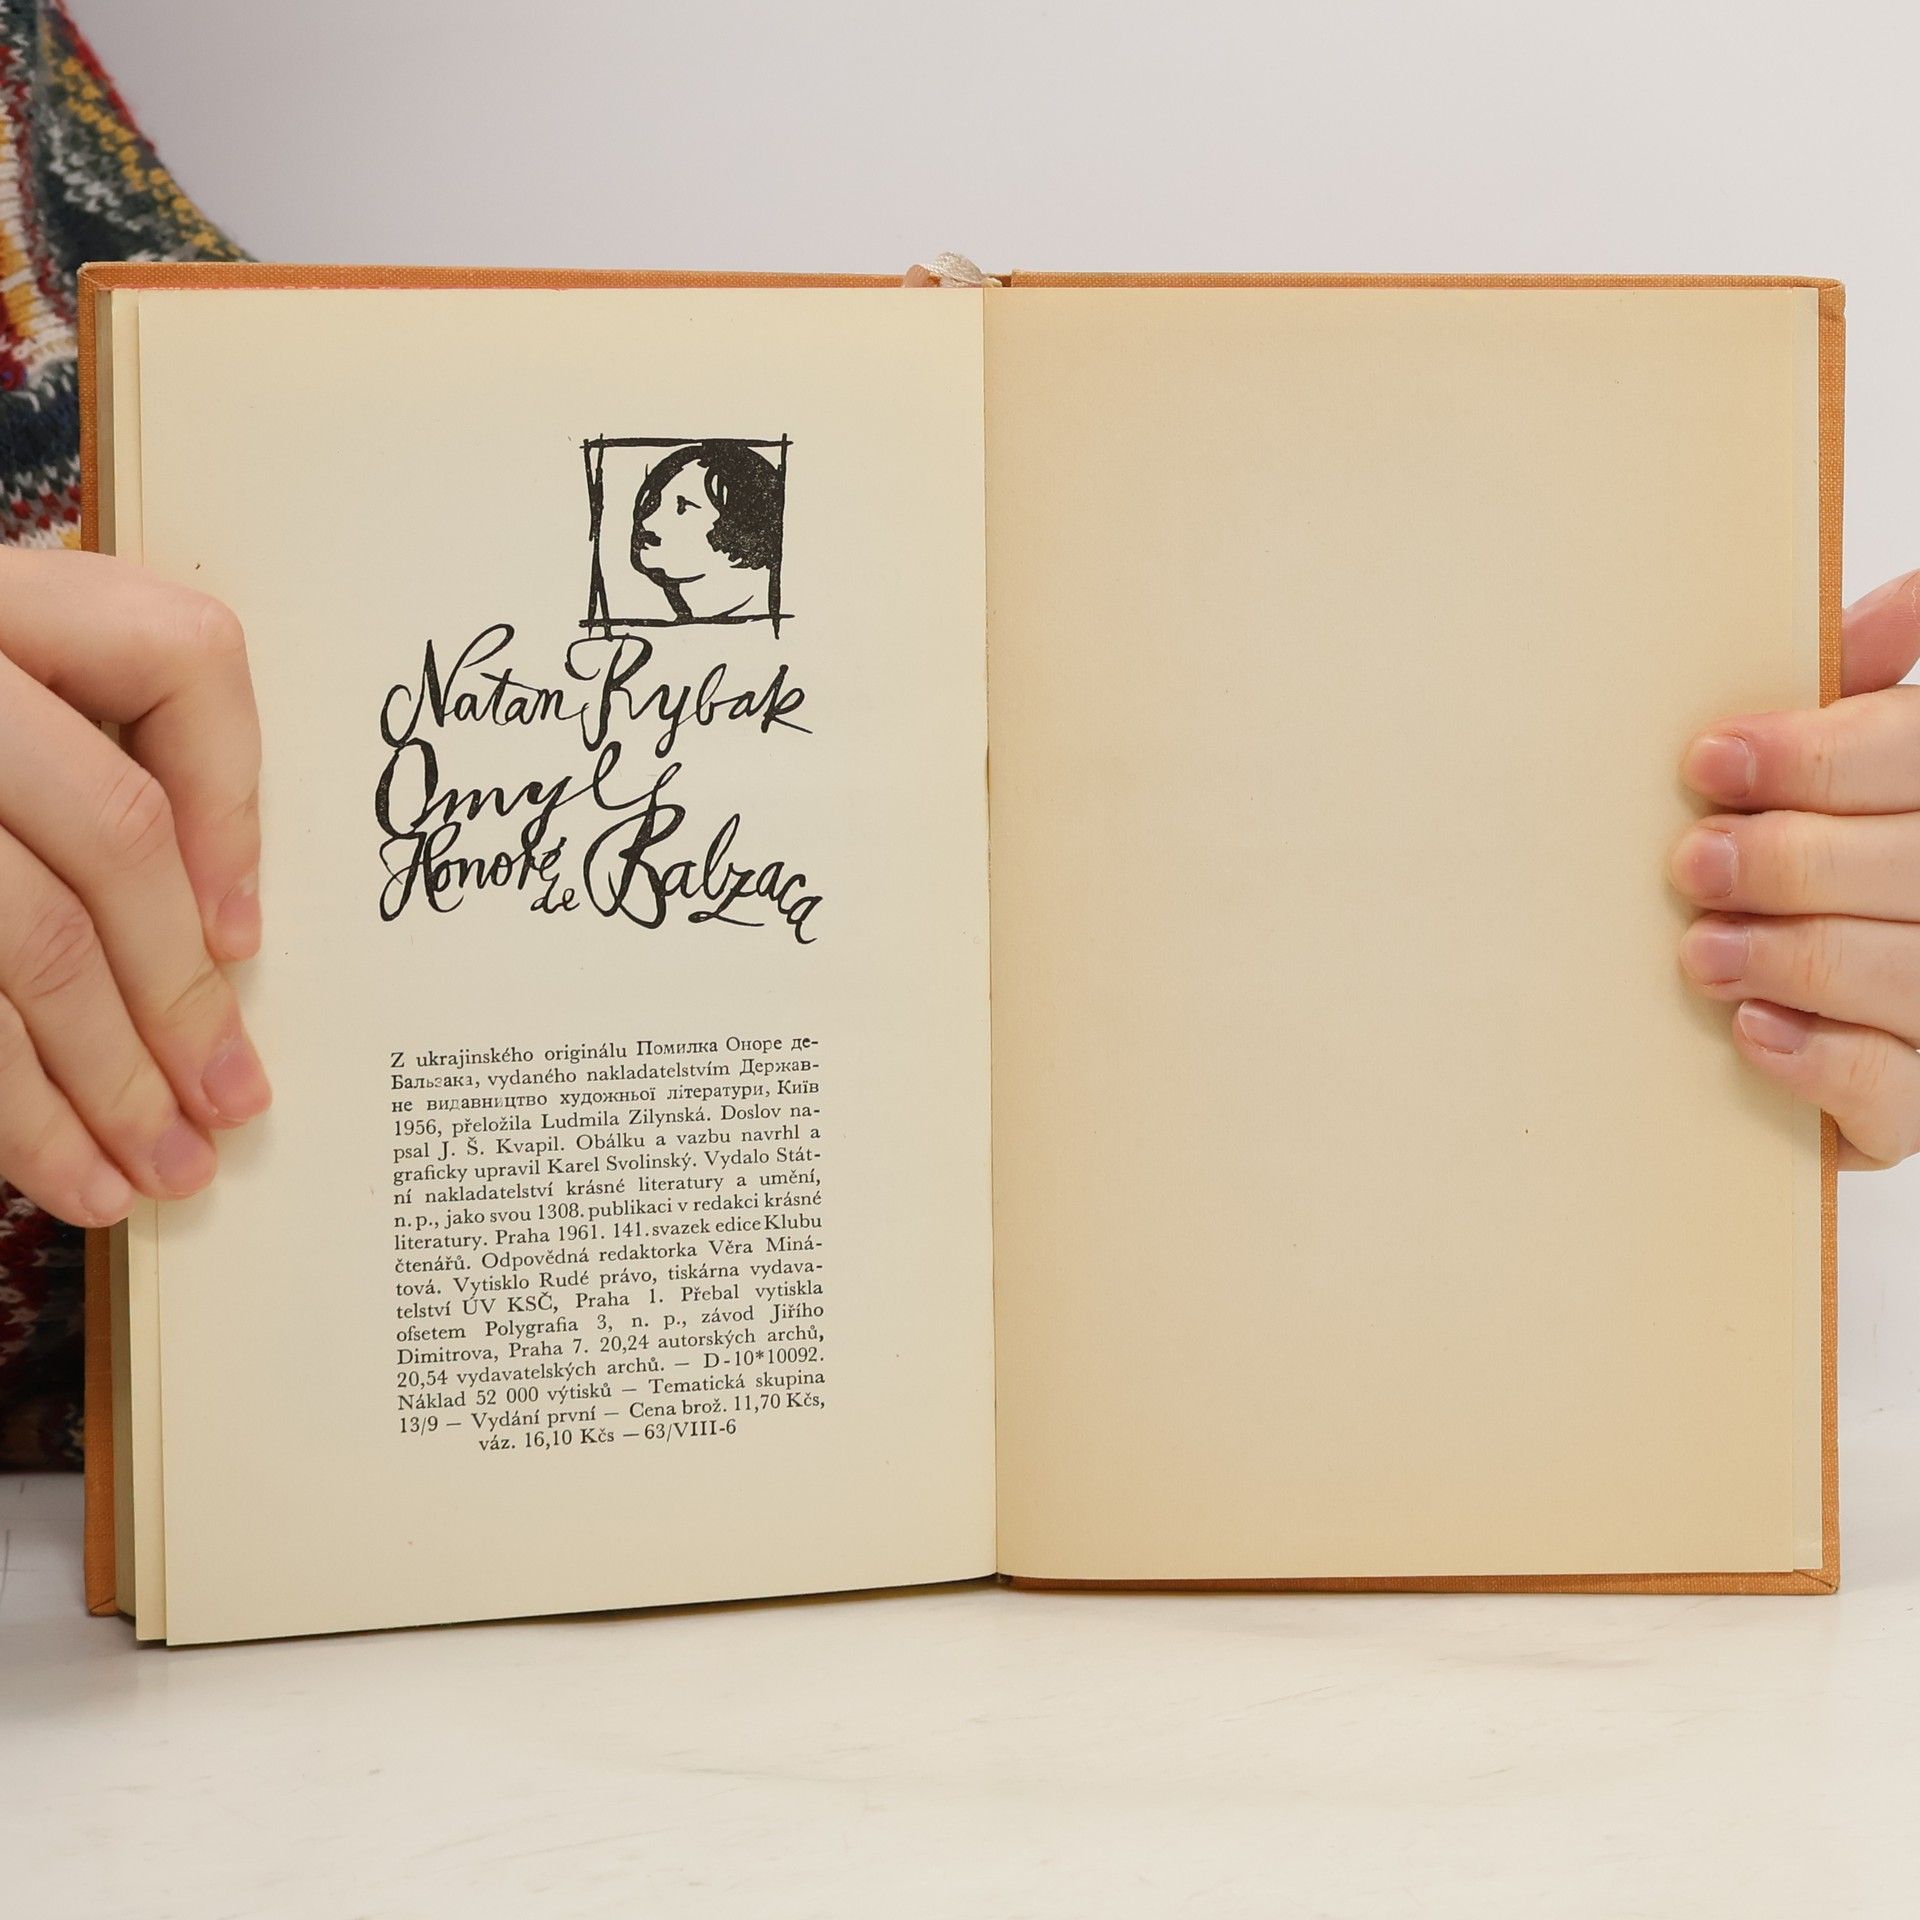 Natan Rybak
Omyl
Honoré de Balzaca
Z ukrajinského originálu Помилка Оноре де-
Бальзака, vydaného nakladatelstvím Держав-
не видавництво художньої літератури, Київ
1956, přeložila Ludmila Zilynská. Doslov na-
psal J. Š. Kvapil. Obálku a vazbu navrhl a
graficky upravil Karel Svolinský. Vydalo Stát-
ní nakladatelství krásné literatury a umění,
n. p., jako svou 1308. publikaci v redakci krásné
literatury. Praha 1961. 141. svazek edice Klubu
čtenářů. Odpovědná redaktorka Věra Miná-
tová. Vytisklo Rudé právo, tiskárna vydava-
telství ÚV KSČ, Praha 1. Přebal vytiskla
ofsetem Polygrafia 3, n. p., závod Jiřího
Dimitrova, Praha 7. 20,24 autorských archů,
20,54 vydavatelských archů. — D-10*10092.
Náklad 52 000 výtisků — Tematická skupina
13/9 — Vydání první — Cena brož. 11,70 Kčs,
váz. 16,10 Kčs — 63/VIII-6